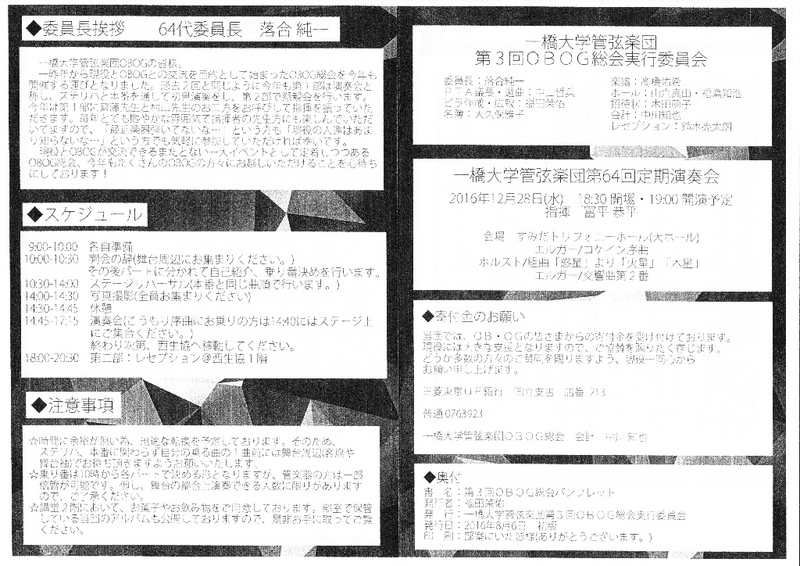 ◆委員長挨拶　64代委員長　落合 純一
一橋大学管弦楽団OBOGの皆様、
一昨年から現役とOBOGとの交流を目的として始まったOBOG総会を今年も
開催する運びとなりました。過去２回と同じように今年も第１部は演奏会と
称し、ステリハと本番を通して初見演奏をし、第２部で懇親会を行います。
今年は第１部に齋藤先生と村上先生のお二方をお呼びして指揮を振っていた
だきます。毎年とても賑やかな雰囲気で指揮者の先生方にも楽しんでいただ
いてますので、「最近楽器弾いてないな…」という方も「現役の人達はあま
り知らないな…」という方でも気軽に参加していただければ幸いです。
現役とOBOGが交流できるまたとない一大イベントとして定着しつつある
OBOG総会、今年もたくさんのOBOGの方々にお越しいただけることを心待ち
にしております！
◆スケジュール
9:00-10:00　各自準備
10:00-10:30　開会の辞(舞台周辺にお集まりください。)
その後パートに分かれて自己紹介、乗り番決めを行います。
10:30-14:00　ステージリハーサル(本番と同じ曲順で行います。)
14:00-14:30　写真撮影(全員お集まりください)
14:30-14:45　休憩
14:45-17:15　演奏会(こうもり序曲にお乗りの方は14:40にはステージ上
にご集合ください。)
終わり次第、西生協へ移動してください。
18:00-20:30　第二部：レセプション＠西生協１階
◆注意事項
☆時間に余裕が無い為、迅速な転換を予定しております。そのため、
ステリハ、本番に関わらず自分の乗る曲の１曲前には舞台周辺(客席や
舞台袖)でお待ち頂きますようお願いいたします。
☆乗り番は10時から各パートで決める形となりますが、管楽器の方は一部
倍管が可能です。但し、舞台の都合上演奏できる人数に限りがあります
ので、ご了承ください。
☆講堂２階において、お菓子やお飲み物をご用意しております。部室で保管
している当団のアルバムも公開しておりますので、是非お手に取ってご覧
ください。
一橋大学管弦楽団
第３回ＯＢＯＧ総会実行委員会
委員長：落合純一
ビラ作成・広報：福田菜佑
名簿：大久保雅子
楽譜：高橋佑希
会計：中川知也
レセプション：鈴木亮太朗
一橋大学管弦楽団第64回定期演奏会
2016年12月28日(水)　18:30 開場・19:00 開演予定
指揮　冨平 恭平
会場　すみだトリフォニーホール(大ホール)
エルガー/コケイン序曲
ホルスト/組曲「惑星」より「火星」「木星」
エルガー/交響曲第２番
◆寄付金のお願い
当団では、ＯＢ・ＯＧの皆さまからの寄付金を受け付けております。
現役には大きな支援となりますので、ご協賛を賜りたく存じます。
どうか多数の方々のご賛同を賜りますよう、現役一同心から
お願い申し上げます。
三菱東京ＵＦＪ銀行　国立支店　店番　213
普通 0763923
一橋大学管弦楽団ＯＢＯＧ総会　会計　中川 知也
◆奥付
書　名：第３回ＯＢＯＧ総会パンフレット
発行者：福田菜佑
発　行：一橋大学管弦楽団第３回ＯＢＯＧ総会実行委員会
発行日：2016年8月6日　初版
印　刷：部室にいた皆様(ありがとうございます。)